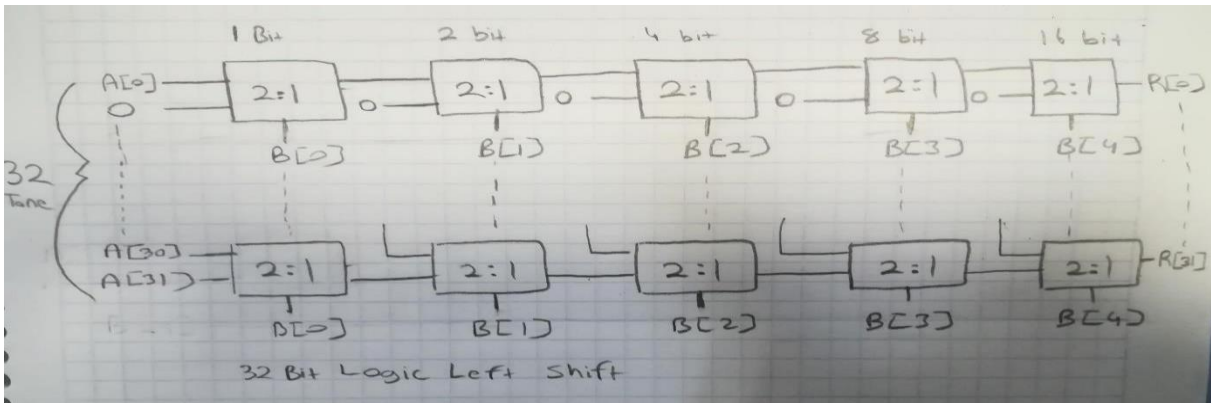 1 Bit 2 bit 4 bit 8 bit 16 bit
A[0] 2:1 2:1 2:1 2:1 2:1 R[0]
0 0 0 0 0
B[0] B[1] B[2] B[3] B[4]
32
Tane
A[30] 2:1 2:1 2:1 2:1 2:1 R[31]
A[31]
B[0] B[1] B[2] B[3] B[4]
32 Bit Logic Left Shift